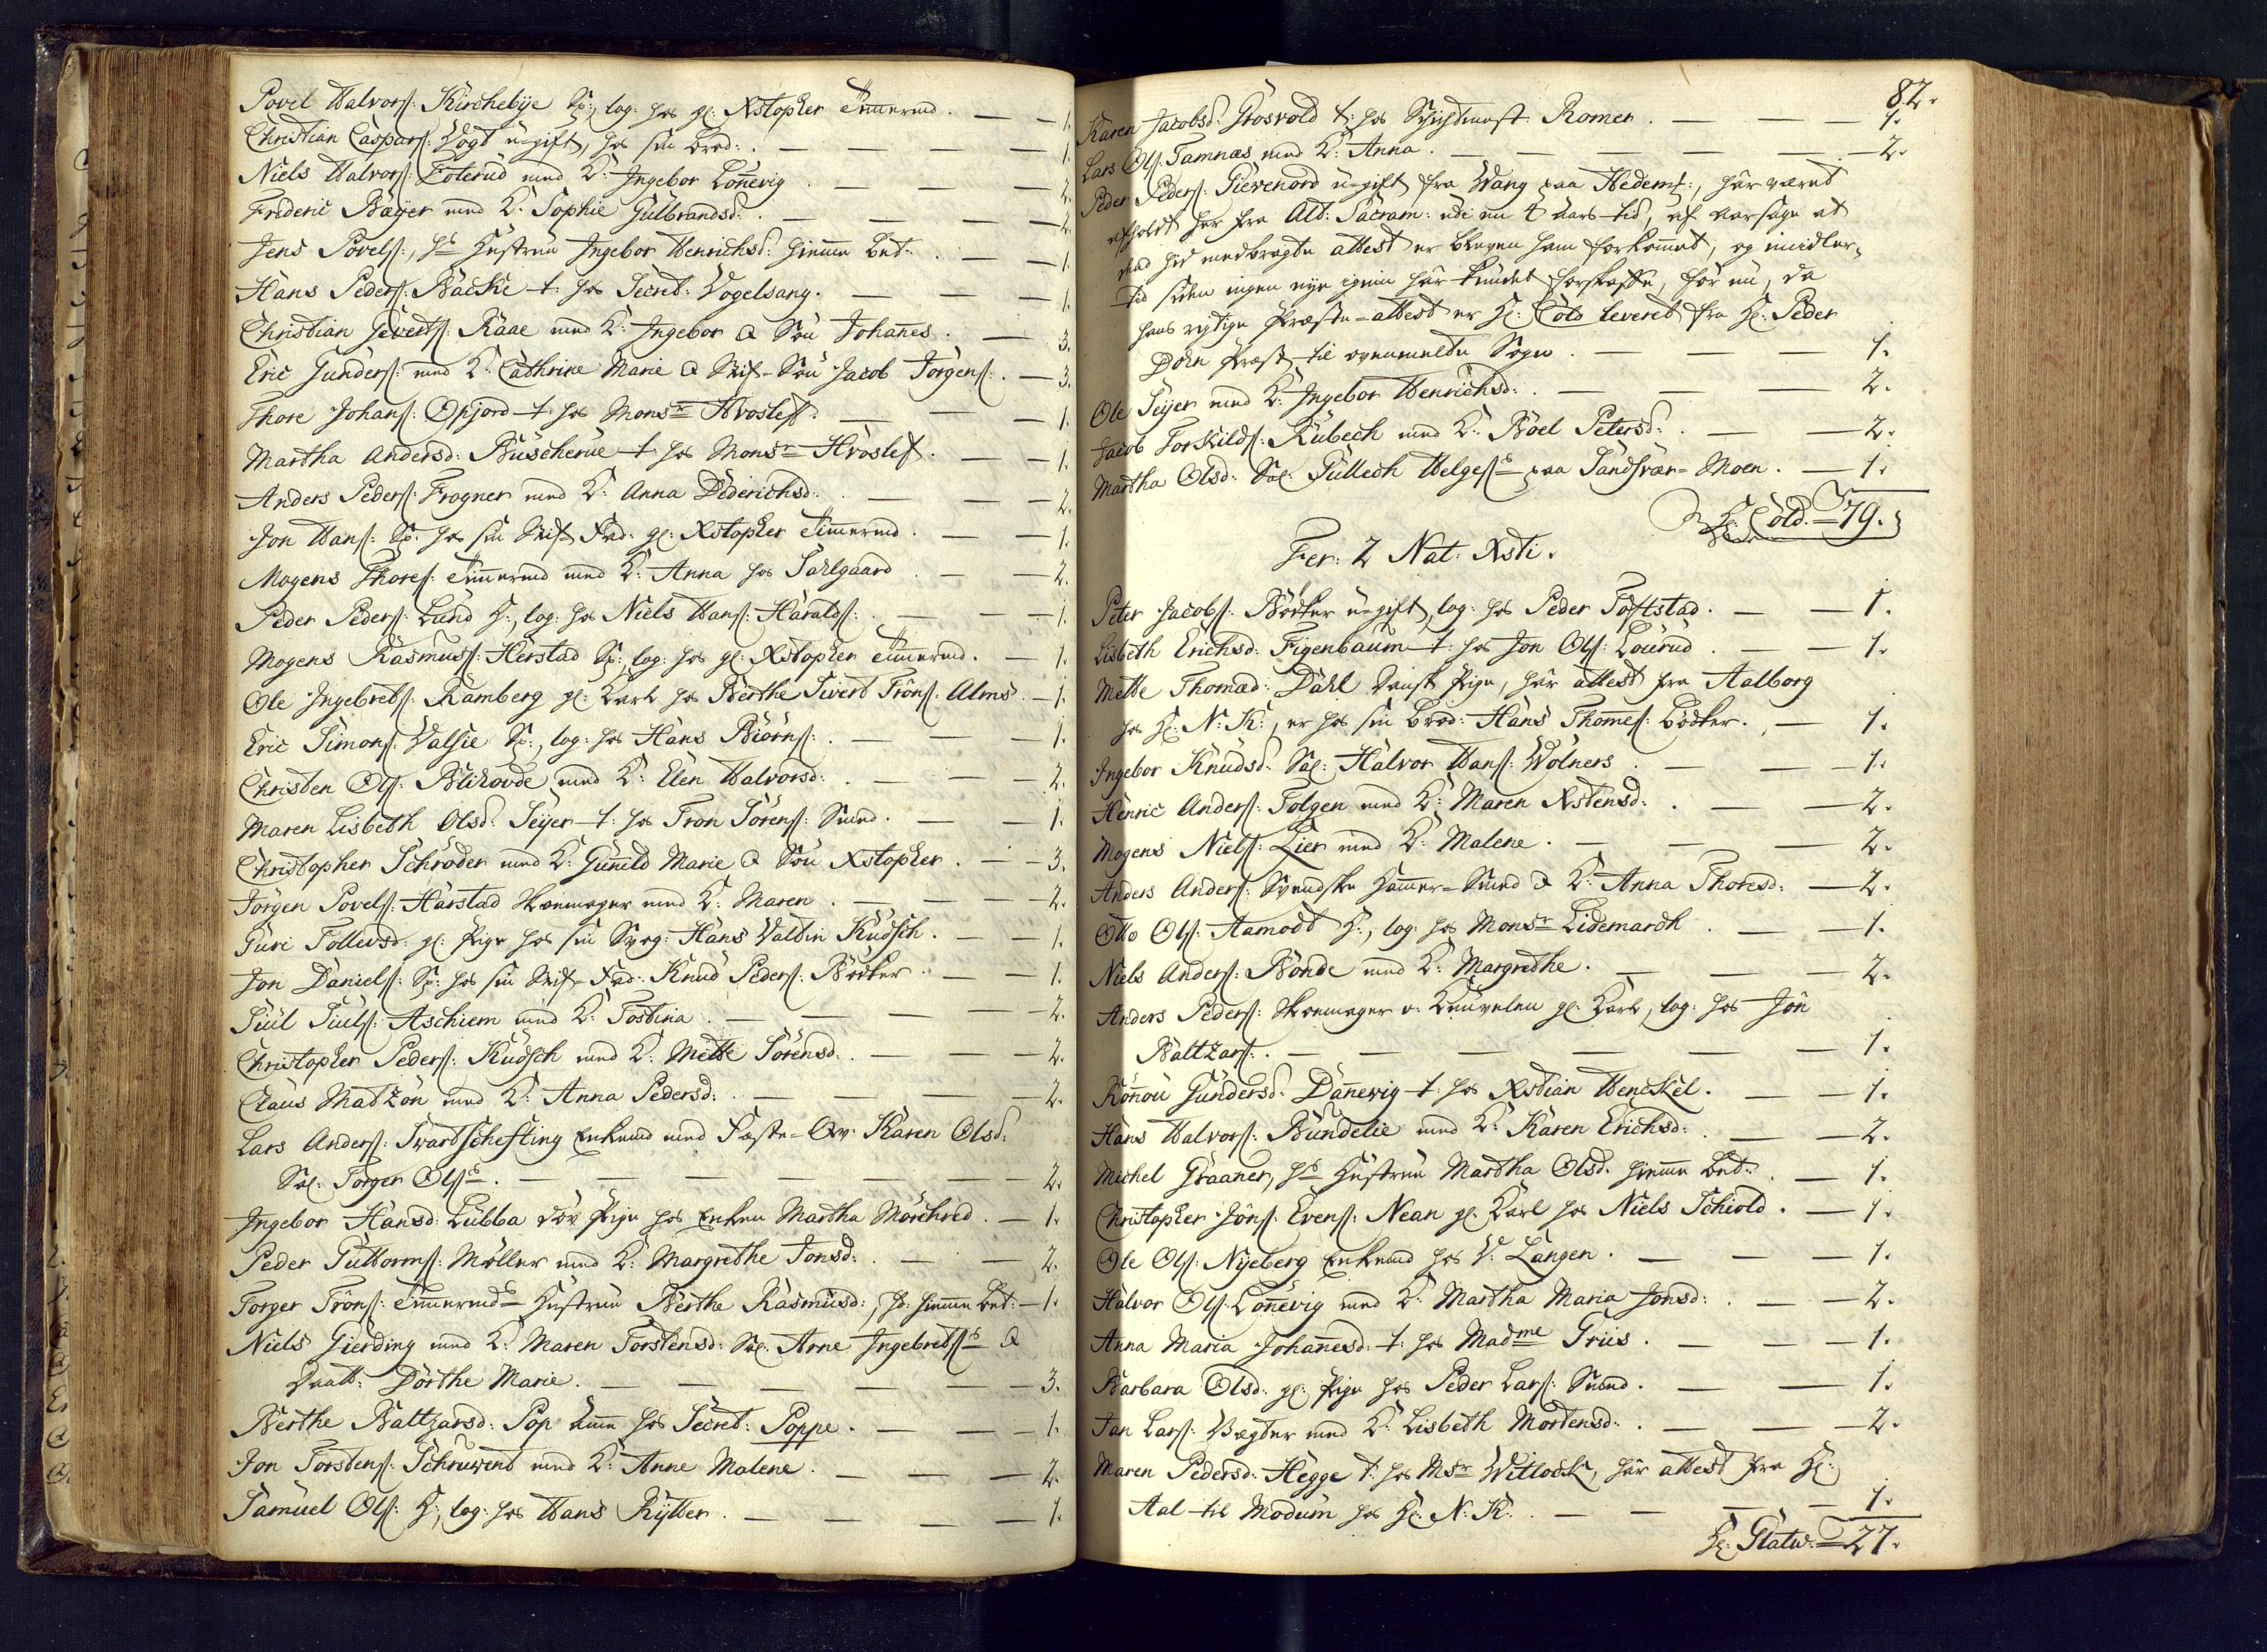 Povel Halvors: Kirchebÿe Sp:, log: hos gl: Xstopher Timmermd. — — 1.
Christian Caspars: Vogt u-gift, hos sin brod: . — — — — 1.
Niels Halvors: Foterud med K: Ingebor Lonnevig . — — — 2.
Frideric Bäÿer med K: Sophie Gulbrandsd: . — — — — 2.
Jens Povels:, hs Hustrue Ingebor Henrichsd: hiemme bet: . — — 1.
Hans Peders: Backe t: hos Secret: Vogelsang. — — — 1.
Christian Severts: Raae med K: Ingebor & Søn Johannes . — 3.
Eric Gunders: med K: Cathrine Marie & Stif-Søn Jacob Jörgens: . — 3.
Thore Johans: Opjord t: hos Monsr Hroslef. — — — 1.
Martha Andersd: Buscherue t: hos Monsr Hroslef. — — 1.
Anders Peders: Frogner med K: Anna Diderichsd: . — — 2.
Jon Hans: Sp: hos sin Stif Fad: gl: Xstopher Timmermd . — — 1.
Mogens Thores: Timmermd med K: Anna hos Sahlgaard . — — 2.
Peder Peders: Lund H:, log: hos Niels Hans: Haralds: . — — 1.
Mogens Rasmuss: Herstad Sp:, log: hos gl: Xstopher Timmermd. — 1.
Ole Ingebrets: Ramberg gl: Karl hos Berthe Sivert Tröns: Alms. — 1.
Eric Simons: Valsie Sp:, log: hos Hans Biörns: . — — — 1.
Christen Ols: Blihovde med K: Elen Halvorsd: . — — — 2.
Maren Lisbeth Olsd: Seÿer t: hos Tron Sörens: Smed. — — 1.
Christopher Schröder med K: Gunild Marie & Søn Xstopher . — 3.
Jörgen Povels: Harstad Skomager med K: Maren . — — — 2.
Guri Tollevsd: gl: Pige hos sin Svog: Hans Valtin Kudsch. — — 1.
Jon Daniels: Sp: hos sin Stif-Fad: Knud Peders: Bödker . — — 1.
Juul Juuls: Aschiem med K: Tostina . — — — — 2.
Christopher Peders: Kudsch med K: Mette Sörensd: . — — — 2.
Claus Matzon med K: Anna Pedersd: . — — — — 2.
Lars Anders: Svartschefting Enkemd med Fæste-Qv: Karen Olsd:
Sal: Torger Olss . — — — — — — 2.
Ingebor Hansd: Lubba döv Pige hos Enken Martha Mörchved . — 1.
Peder Guttorms: Møller med K: Margrethe Jonsd: . — — 2.
Torger Tröns: Timmermds Hustrue Berthe Rasmusd:, hd: hiemme bet: — 1.
Niels Gierding med K: Maren Torstensd: Sal: Arne Ingebretss &
Daatt: Dorthe Marie . — — — — — 3.
Berthe Baltzarsd: Pop Amme hos Secret: Poppe. — — — 1.
Jon Torstens: Schruwent med K: Anne Malene . — — — 2.
Samuel Ols: H:, log: hos Hans Rÿtter . — — — — 1.
82.
Karen Jacobsd: Grosvold t: hos Schichtmest: Romer . — — — 1.
Lars Ols: Tamnæs med K: Anna . — — — — — 2.
Peder Peders: Gievenord u-gift fra Wang paa Hedem:, har været
afholdt her fra Alt: Sacram: udi nu 4 aars tid, af aarsage at
dend hid medbragte attest er bleven ham forkommet, og imidler-
tid siden ingen nye igien har kundet forskaffe, för nu, da
hans rigtige Præste-attest er Hr: Cold leveret fra Hr: Peder
Dorn Præst til ovenmeldte Sogn . — — — 1.
Ole Seÿer med K: Ingebor Henrichsd: . — — — 2.
Jacob Torkilds: Rubech med K: Boel Petersd: . — — 2.
Martha Olsd: Sal: Gullech Helgess paa Sandsvær-Moen. — 1.
Hr: Cold. = 79.
Fer: 2 Nat: Xsti.
Peter Jacobs: Bödker u-gift, log: hos Peder Toftstad. — — 1.
Lisbeth Erichsd: Figenbaum t: hos Jon Ols: Lourud . — — 1.
Mette Thomæd: Dahl dansk Pige, har attest fra Aalborg
hos Hr: N: K:, er hos sin brod: Hans Thomes: Bödker. — 1.
Ingebor Knudsd: Sal: Halvor Hans: Wolners . — — — 1.
Henric Anders: Tolgen med K: Maren Xstensd: . — — 2.
Mogens Niels: Lier med K: Malene . — — — 2.
Anders Anders: Svendske Hammer-Smed & K: Anna Thoresd: — 2.
Otto Ols: Aamodt H:, log: hos Monsr Lidemardh . — — 1.
Niels Anders: Bonde med K: Margrethe . — — — 2.
Anders Peders: Skomager v: Knuvelen gl: Karl, log: hos Jon
Baltzars: . — — — — — — 1.
Rönnou Gundersd: Dannevig t: hos Xstian Henckel . — — 1.
Hans Halvors: Bundelie med K: Karen Erichsd: . — — 2.
Michel Graaner, hs Hustrue Martha Olsd: hiemme bet: . — 1.
Christopher Jons: Evens: Nean gl: Karl hos Niels Schiold . — 1.
Ole Ols: Nÿeberg Enkemd hos V: Langen . — — — 1.
Halvor Ols: Lonnevig med K: Martha Maria Jonsd: . — — 2.
Anna Maria Johannesd: t: hos Madme Griis . — — — 1.
Barbara Olsd: gl: Pige hos Peder Lars: Smed . — — 1.
Jan Lars: Vægter med K: Lisbeth Mortensd: . — — — 2.
Maren Pedersd: Hegge t: hos Msr Witlock, har attest fra Hr:
Aal til Modum hos Hr: N: K: . — — — — 1.
Hr: Statw. = 27.